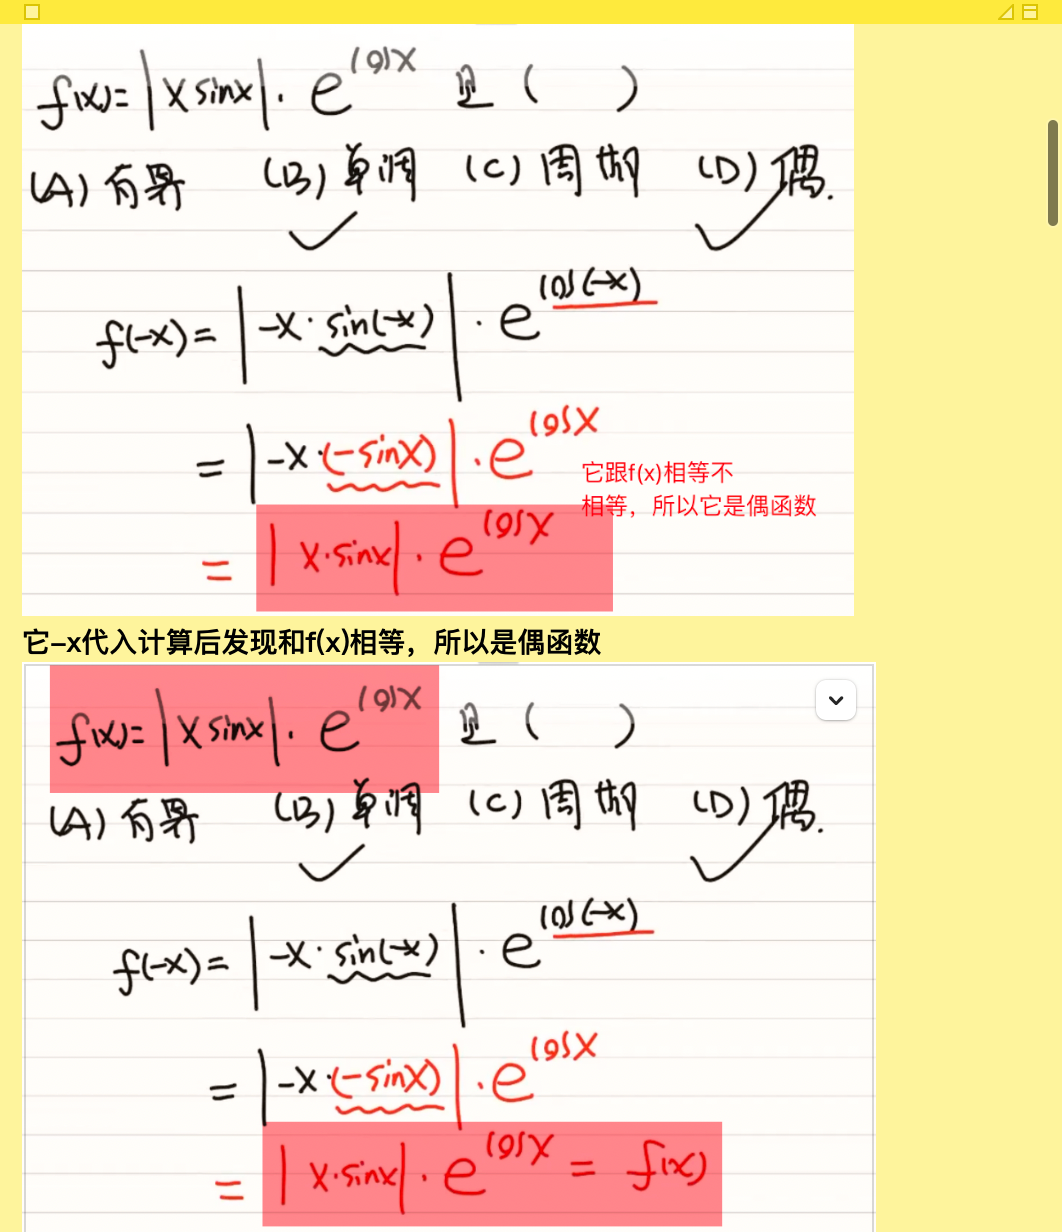 f(x)=|x sinx|·e^cosx 是 ( )
(A) 有界 (B) 单调 (C) 周期 (D) 偶.
f(-x)=|-x·sin(-x)|·e^cos(-x)
=|-x·(-sinx)|·e^cosx
它跟f(x)相等不
相等，所以它是偶函数
=|x·sinx|·e^cosx
它-x代入计算后发现和f(x)相等，所以是偶函数
f(x)=|x sinx|·e^cosx 是 ( )
(A) 有界 (B) 单调 (C) 周期 (D) 偶.
f(-x)=|-x·sin(-x)|·e^cos(-x)
=|-x·(-sinx)|·e^cosx
=|x·sinx|·e^cosx = f(x)